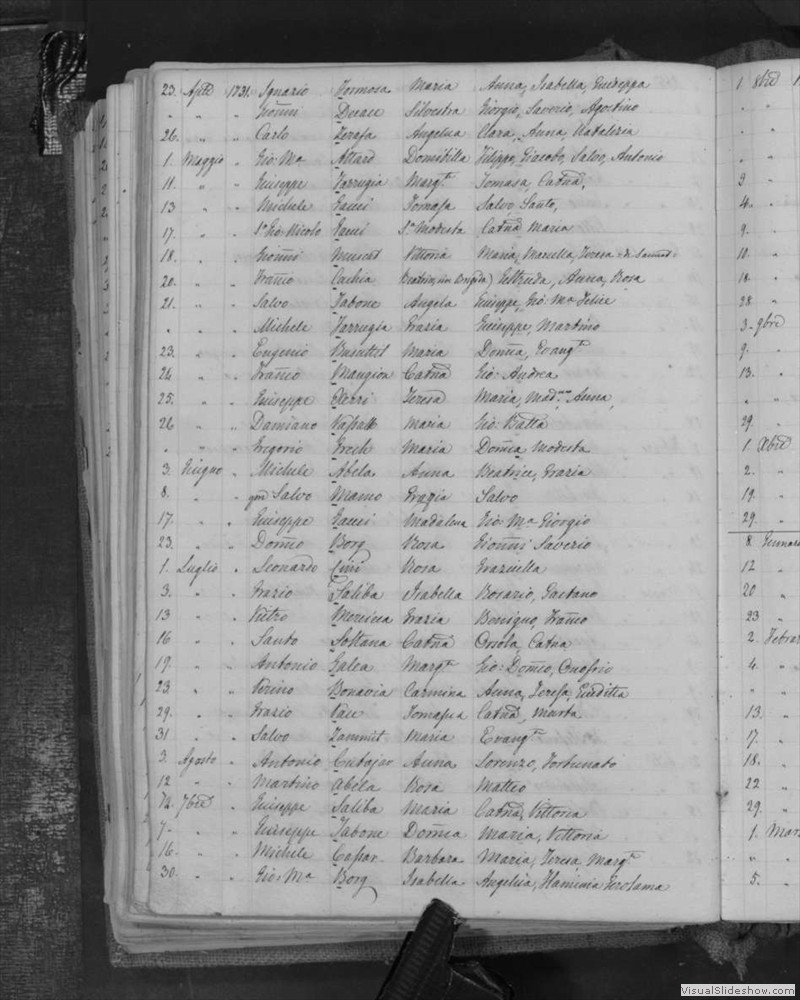 23. Aple 1731. Ignazio Formosa Maria Anna, Isabella, Giuseppa
" " " Gionni Silvestra Giorgio, Saverio, Agostino
26. " " Carlo Zerafa Angelica Clara, Anna, Nataleria
1. Maggio " Gio: Ma Attard Domitilla Filippo, Giacobo, Salvo, Antonio
11. " " Giuseppe Farrugia Margta Tomasa, Catna,
13 " " Michele Gauci Tomasa Salvo Santo,
17. " " Sr Gio: Nicolo Gauci Sra Modesta Catna Maria
18. " " Gionni Muscat Vittoria Maria, Marcella, Teresa
20. " " Franco Cachia Anna, Rosa
21. " " Salvo Tabone Angela Giuseppe, Gio: Ma Felice
" " " Michele Farrugia Grazia Giuseppe, Martino
23. " " Eugenio Busuttil Maria Domca, Evangta
24 " " Franco Mangion Catna Gio: Andrea
25. " " Giuseppe Xerri Teresa Maria, Madna Anna
26 " " Damiano Vassall Maria Gio: Batta
" " " Gregorio Grech Maria Domca Modesta
3. Giugno " Michele Abela Anna Beatrice, Grazia
8. " " qm Salvo Mamo Grazia Salvo
17. " " Giuseppe Gauci Madalena Gio: Ma Giorgio
23. " " Domco Borg Rosa Gionni Saverio
1. Luglio " Leonardo Cini Rosa Graziella
3. " " Grazio Saliba Isabella Rosario, Gaetano
13 " " Pietro Grazia Benigno, Franco
16 " " Santo Soltana Catna Orsola, Catna
19. " " Antonio Galea Margta Gio: Domco, Onofrio
23 " " Bonavia Carmina Anna, Teresa, Euditta
29. " " Grazio Tomasa Catna, Marta
31 " " Salvo Zammit Maria Evangta
3. Agosto " Antonio Cutajar Anna Lorenzo, Fortunato
12 " " Martino Abela Rosa Matteo
7bre " Giuseppe Saliba Maria Catna, Vittoria
7. " " Giuseppe Tabone Domca Maria, Vittoria
16. " " Michele Caspar Barbara Maria, Teresa, Margta
30. " " Gio: Ma Borg Isabella Angelica, Flaminia
1 8bre
" "
" "
" "
9 "
4. "
9. "
10. "
18. "
28. "
3. 9bre
9. "
13. "
" "
29. "
1. Xbre
2. "
19. "
29. "
8 Gennaro
12 "
20 "
23 "
2. Febrar
4. "
" "
13. "
17. "
18. "
22 "
29. "
1. Mar
" "
5. "
VisualSlideshow.com